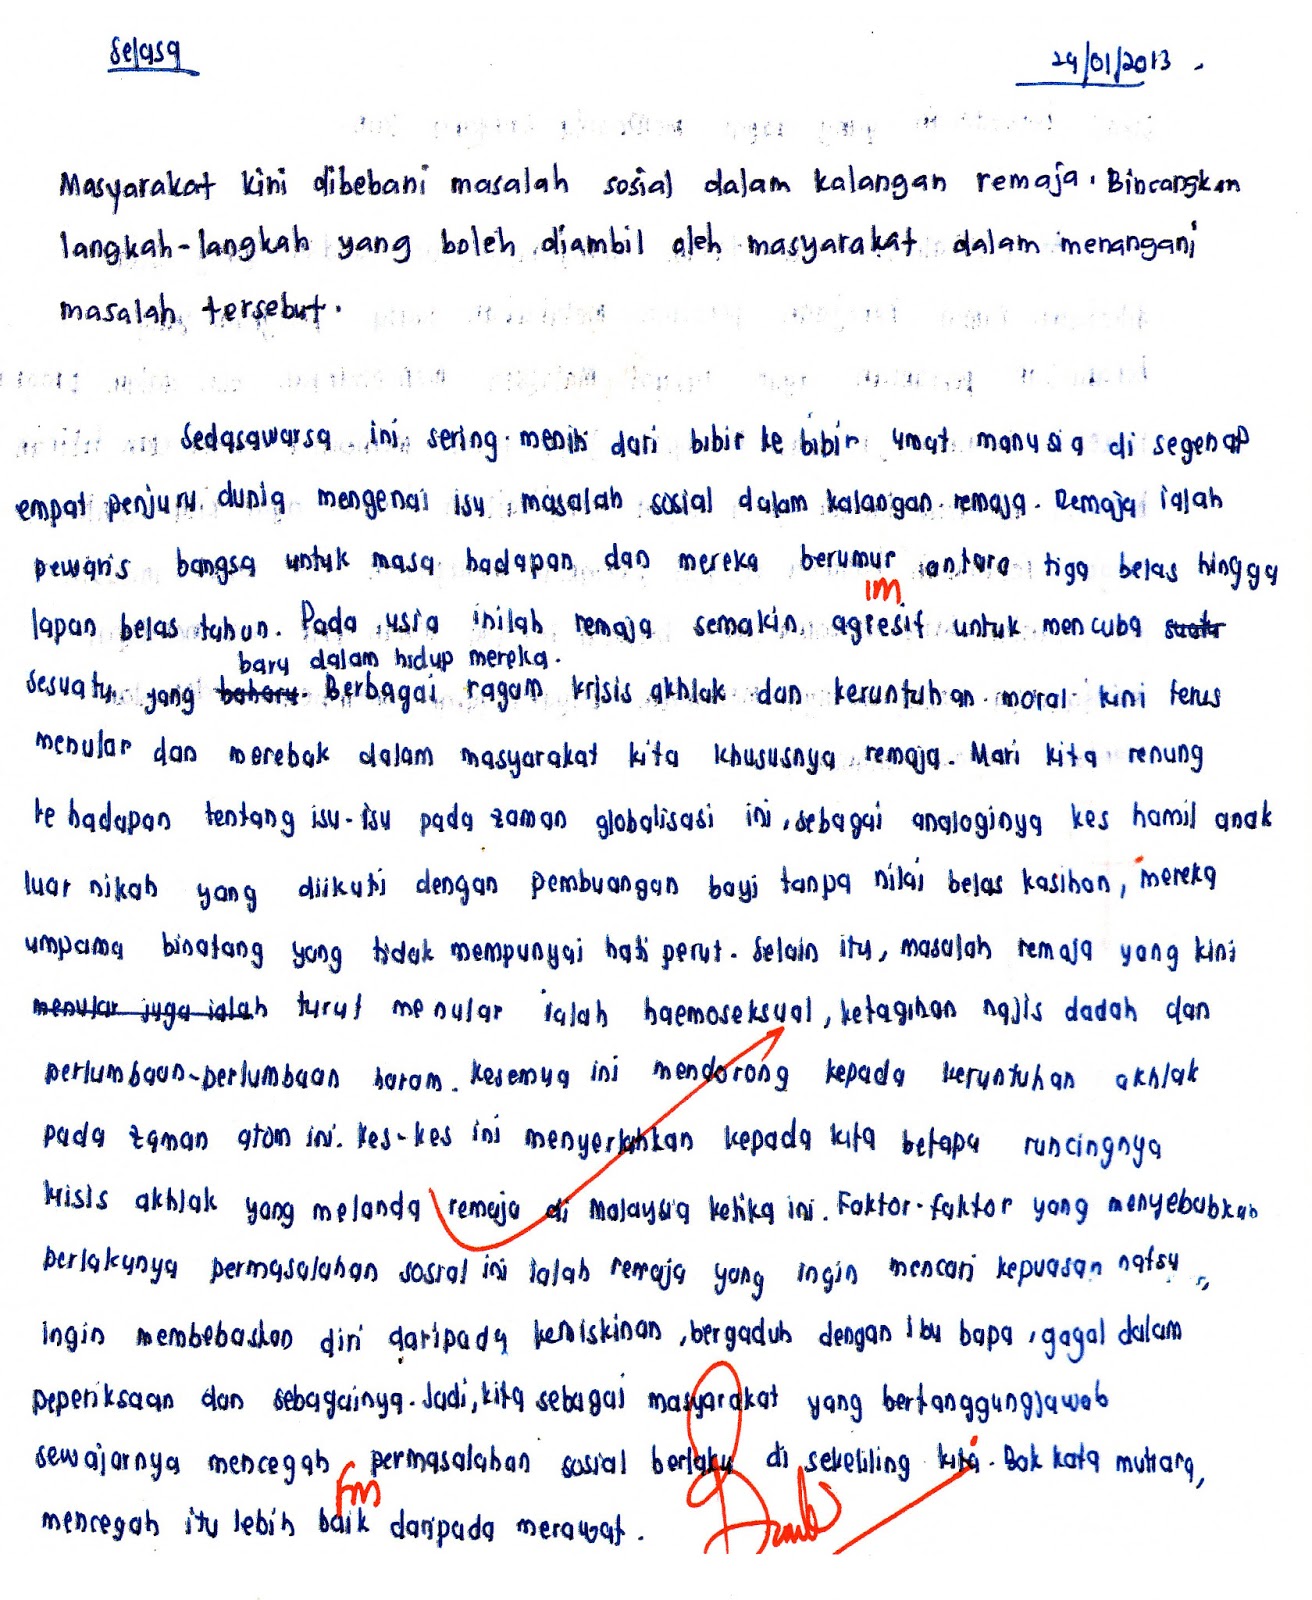 Selasa
29/01/2013
Masyarakat kini dibebani masalah sosial dalam kalangan remaja. Bincangkan
langkah-langkah yang boleh diambil oleh masyarakat dalam menangani
masalah tersebut.
Sedasawarsa ini sering meniti dari bibir ke bibir umat manusia di segenap
empat penjuru dunia mengenai isu masalah sosial dalam kalangan remaja. Remaja ialah
pewaris bangsa untuk masa hadapan dan mereka berumur antara tiga belas hingga
IM
lapan belas tahun. Pada usia inilah remaja semakin agresif untuk mencuba suatu
baru dalam hidup mereka.
sesuatu yang baharu. Berbagai ragam krisis akhlak dan keruntuhan moral kini terus
menular dan merebak dalam masyarakat kita khususnya remaja. Mari kita renung
ke hadapan tentang isu-isu pada zaman globalisasi ini, sebagai analoginya kes hamil anak
luar nikah yang diikuti dengan pembuangan bayi tanpa nilai belas kasihan, mereka
umpama binatang yang tidak mempunyai hati perut. Selain itu, masalah remaja yang kini
menular juga ialah turut menular ialah haemoseksual, ketagihan najis dadah dan
perlumbaan-perlumbaan haram. Kesemua ini mendorong kepada keruntuhan akhlak
pada zaman atom ini. Kes-kes ini menyerlahkan kepada kita betapa runcingnya
krisis akhlak yang melanda remaja di Malaysia ketika ini. Faktor-faktor yang menyebabkan
berlakunya permasalahan sosial ini ialah remaja yang ingin mencari kepuasan nafsu,
ingin membebaskan diri daripada kemiskinan, bergaduh dengan ibu bapa, gagal dalam
peperiksaan dan sebagainya. Jadi, kita sebagai masyarakat yang bertanggungjawab
sewajarnya mencegah permasalahan sosial berlaku di sekeliling kita. Bak kata mutiara,
FM
mencegah itu lebih baik daripada merawat.